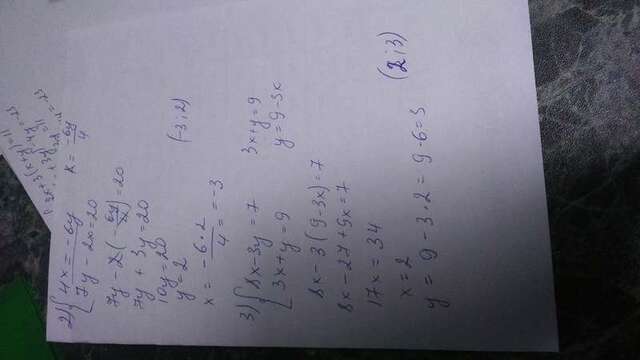 2) { 4x = -6y
7y - 2x = 20
x = -6y/4
7y - 2(-6y/4) = 20
7y + 3y = 20
10y = 20
y = 2
x = -6·2/4 = -3
(-3; 2)
3) { 8x - 3y = 7
3x + y = 9
3x + y = 9
y = 9 - 3x
8x - 3(9 - 3x) = 7
8x - 27 + 9x = 7
17x = 34
x = 2
y = 9 - 3·2 = 9 - 6 = 3
(2; 3)